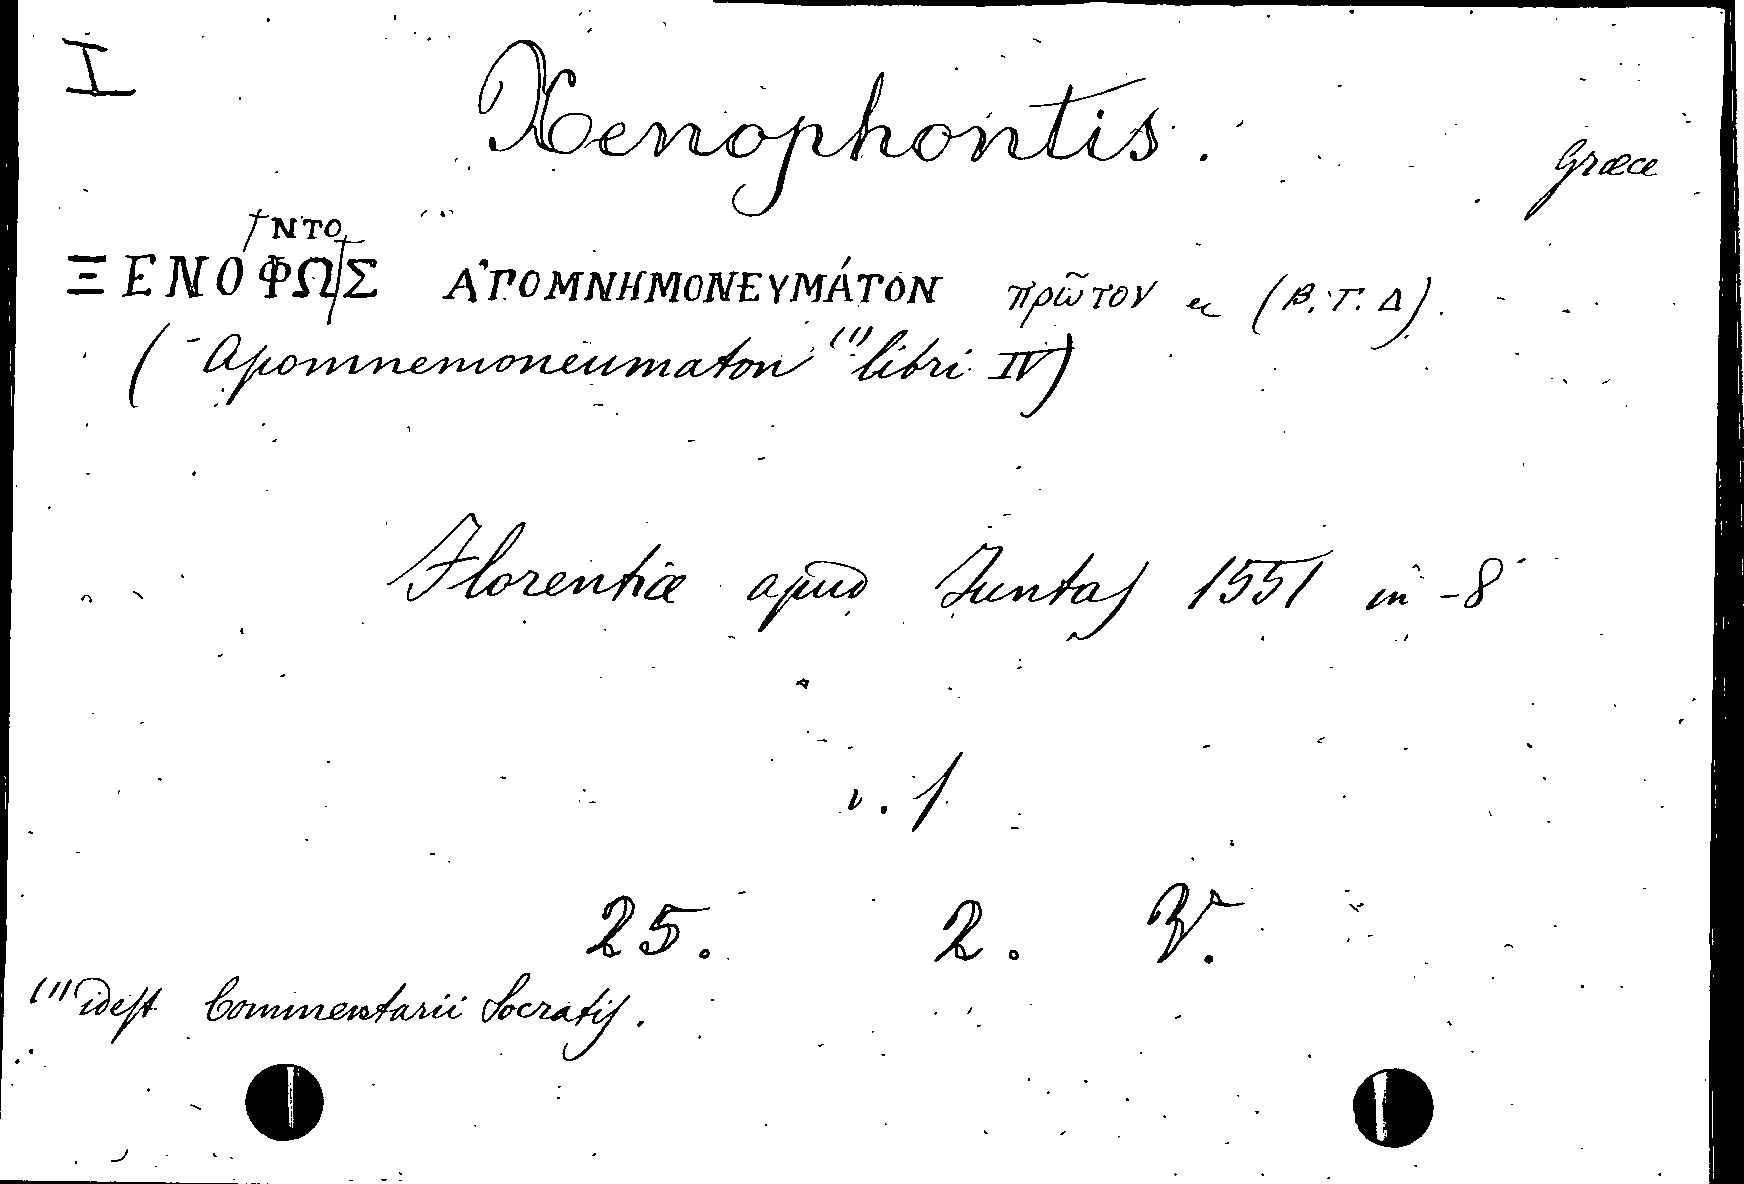 I
Xenophontis.
Græce
†ΝΤΟ
ΞΕΝΟΦΩΣ ΑΠΟΜΝΗΜΟΝΕΥΜΆΤΟΝ πρῶτον & (Β. Γ. Δ).
(Apomnemoneumaton (1) libri IV)
Florentiæ apud Juntas 1551 in-8°
v. 1
25. 2.
(1) idest Commentarii Socratis.